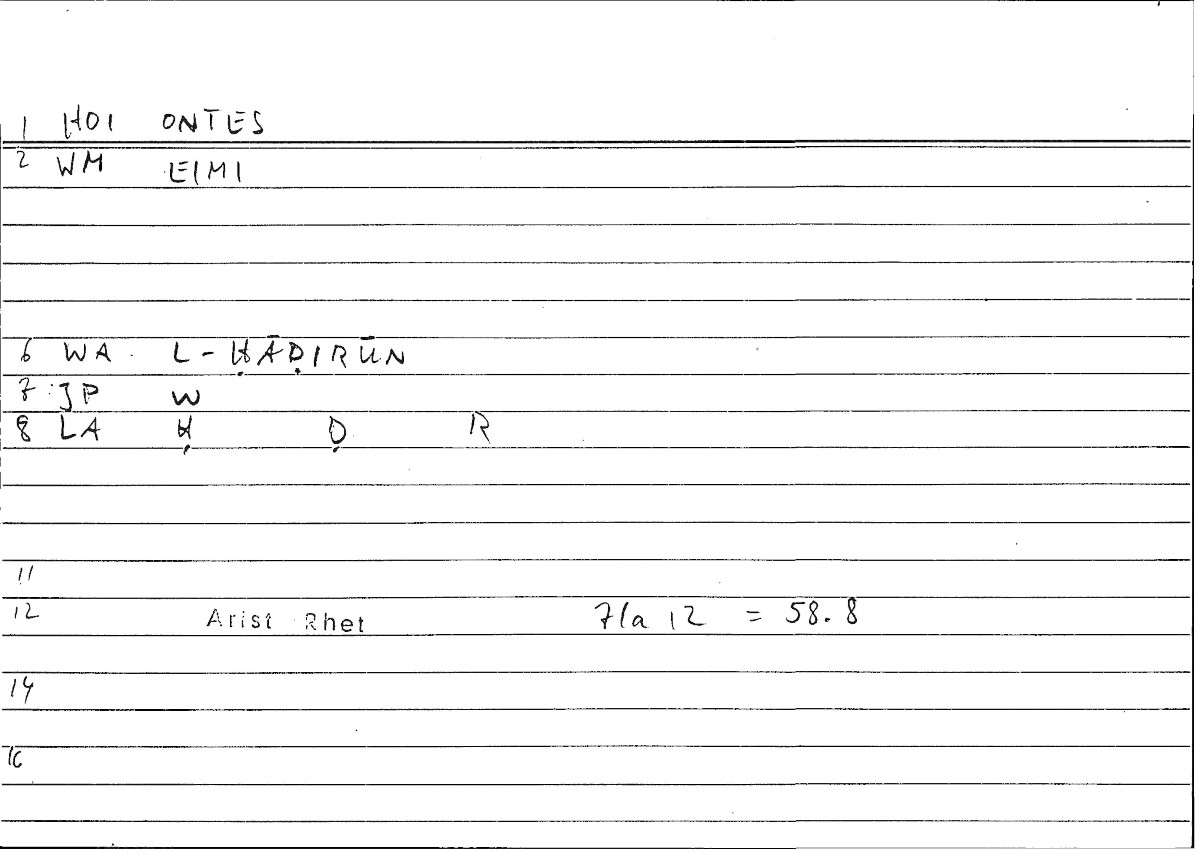 1 HOI ONTES
2 WM EIMI
6 WA L-ḤĀḌIRŪN
7 JP W
8 LA Ḥ Ḍ R
11
12 Arist Rhet 71a 12 = 58.8
14
16